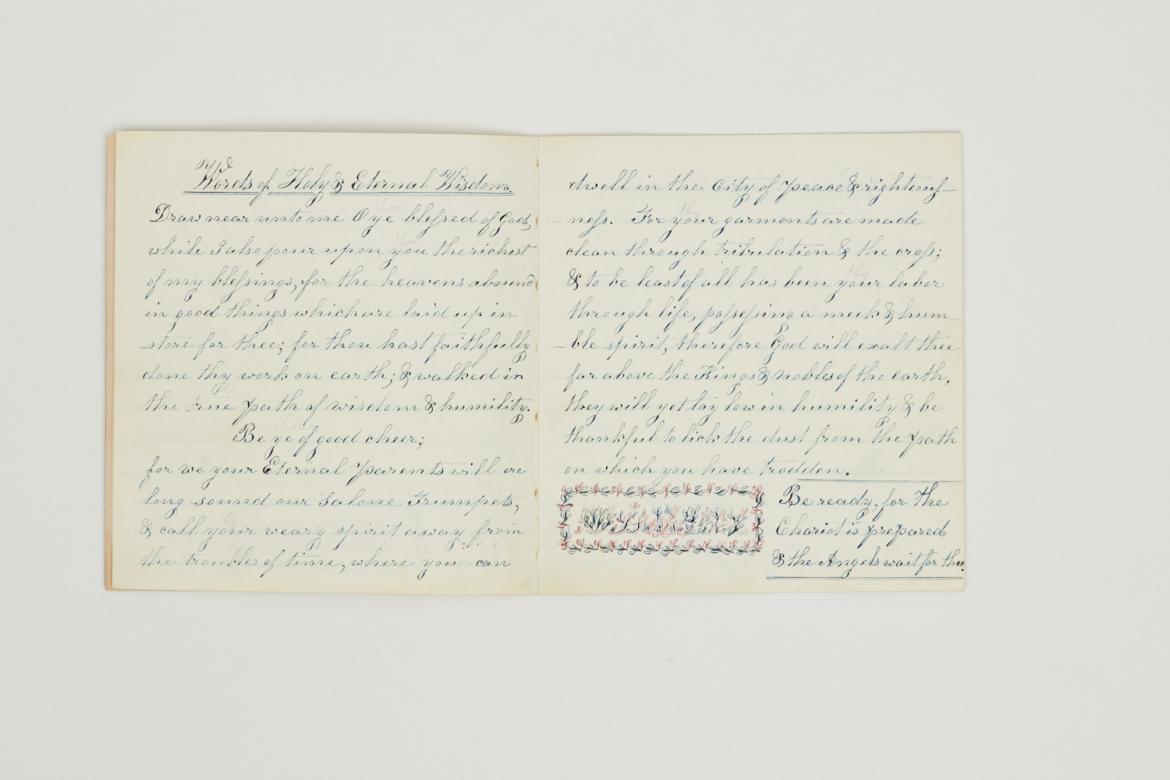 Words of Holy & Eternal Wisdom.
Draw near unto me O ye blessed of God,
while I also pour upon you the richest
of my blessings, for the heavens abound
in good things which are laid up in
store for thee; for thou hast faithfully
done thy work on earth; & walked in
the true path of wisdom & humility.
Be ye of good cheer;
for we your Eternal Parents will ere
long sound our Salone Trumpets,
& call your weary spirit away from
the troubles of time, where you can
dwell in the City of peace & righteous-
ness. For your garments are made
clean through tribulation & the cross;
& to be least of all has been your labor
through life, possessing a meek & hum-
-ble spirit, therefore God will exalt thee
far above the Kings & nobles of the earth,
they will yet lay low in humility & be
thankful to lick the dust from the path
on which you have trodden.
Be ready, for the
Chariot is prepared
& the Angels wait for thee.